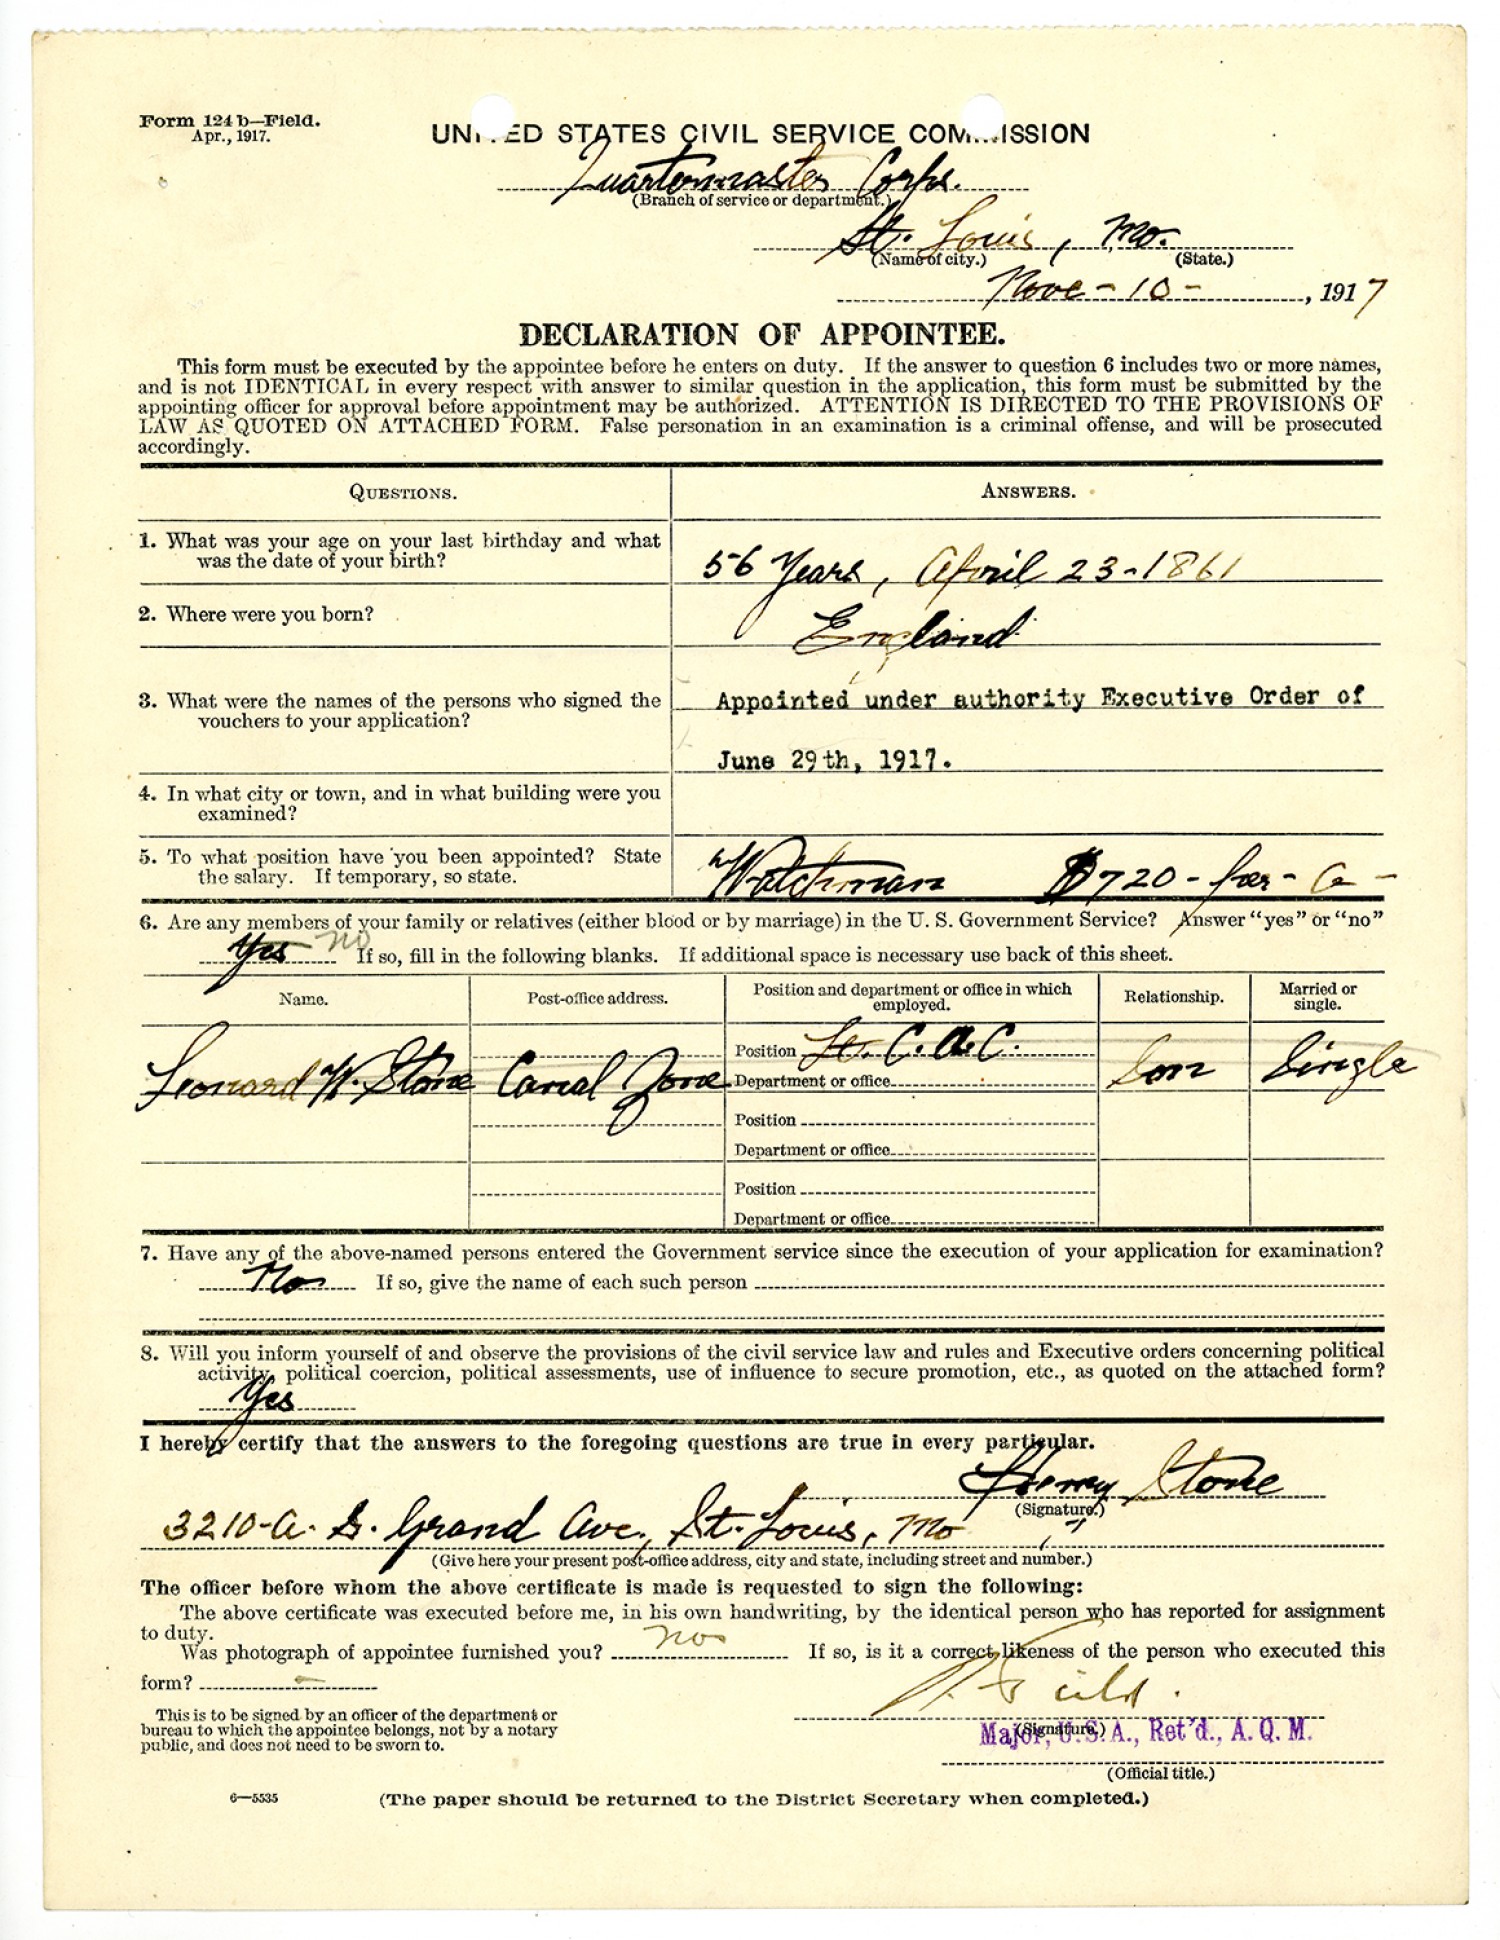 Form 124 b—Field.
Apr., 1917.
UNITED STATES CIVIL SERVICE COMMISSION
Quartermaster Corps.
(Branch of service or department.)
St. Louis, Mo.
(Name of city.) (State.)
Nove - 10 - , 1917
DECLARATION OF APPOINTEE.
This form must be executed by the appointee before he enters on duty. If the answer to question 6 includes two or more names,
and is not IDENTICAL in every respect with answer to similar question in the application, this form must be submitted by the
appointing officer for approval before appointment may be authorized. ATTENTION IS DIRECTED TO THE PROVISIONS OF
LAW AS QUOTED ON ATTACHED FORM. False personation in an examination is a criminal offense, and will be prosecuted
accordingly.
QUESTIONS. ANSWERS.
1. What was your age on your last birthday and what
was the date of your birth?
56 Years, April 23-1861
2. Where were you born?
England
3. What were the names of the persons who signed the
vouchers to your application?
Appointed under authority Executive Order of
June 29th, 1917.
4. In what city or town, and in what building were you
examined?
5. To what position have you been appointed? State
the salary. If temporary, so state.
Watchman $720- per- a -
6. Are any members of your family or relatives (either blood or by marriage) in the U. S. Government Service? Answer "yes" or "no"
Yes no If so, fill in the following blanks. If additional space is necessary use back of this sheet.
Name. Post-office address. Position and department or office in which
employed. Relationship. Married or
single.
Leonard W. Stone Canal Zone Position Lt. C. A. C. Son Single
Department or office
Position
Department or office
Position
Department or office
7. Have any of the above-named persons entered the Government service since the execution of your application for examination?
No If so, give the name of each such person
8. Will you inform yourself of and observe the provisions of the civil service law and rules and Executive orders concerning political
activity, political coercion, political assessments, use of influence to secure promotion, etc., as quoted on the attached form?
Yes
I hereby certify that the answers to the foregoing questions are true in every particular.
Henry Stone
(Signature.)
3210-A. S. Grand Ave., St. Louis, Mo
(Give here your present post-office address, city and state, including street and number.)
The officer before whom the above certificate is made is requested to sign the following:
The above certificate was executed before me, in his own handwriting, by the identical person who has reported for assignment
to duty.
Was photograph of appointee furnished you? no If so, is it a correct likeness of the person who executed this
form? -
This is to be signed by an officer of the department or
bureau to which the appointee belongs, not by a notary
public, and does not need to be sworn to.
(Signature.)
Major, U.S.A., Ret'd., A.Q.M.
(Official title.)
6—5535 (The paper should be returned to the District Secretary when completed.)